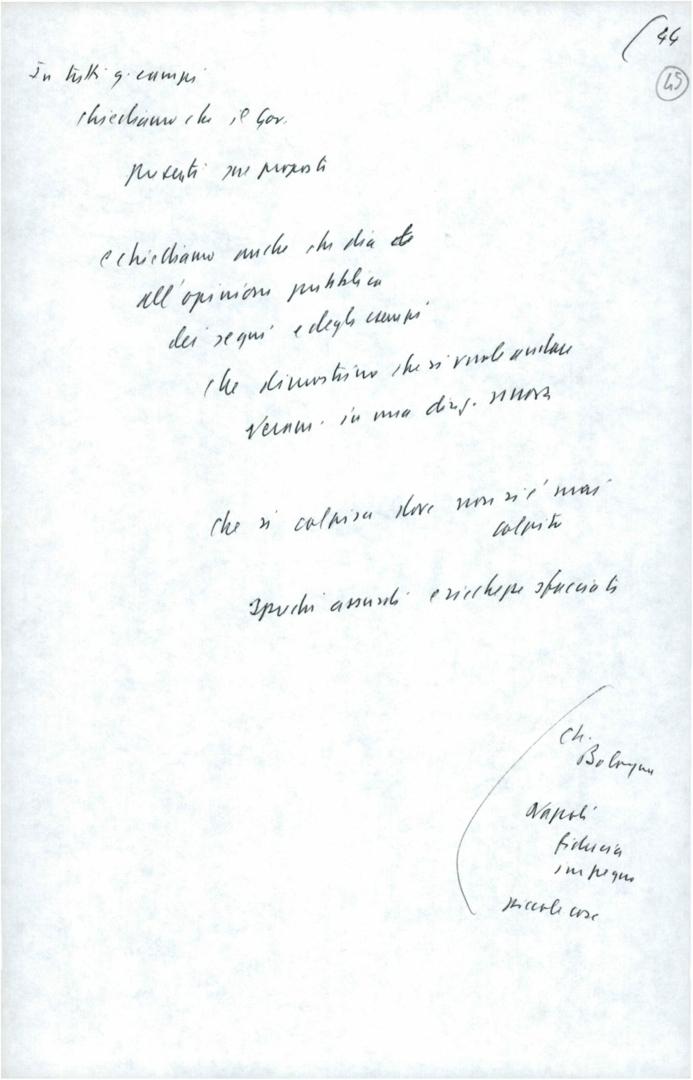 44
45
In tutti q. campi
chiediamo che il Gov.
presenti sue proposte
e chiediamo anche che dia
all'opinione pubblica
dei segni e degli esempi
che dimostrino che si vuole andare
veram. in una direz. nuova
che si colpisca dove non si è mai
colpito
sprechi assurdi e ricchezze sfacciate
Ch.
Bologna
Napoli
fiducia
impegno
piccole cose